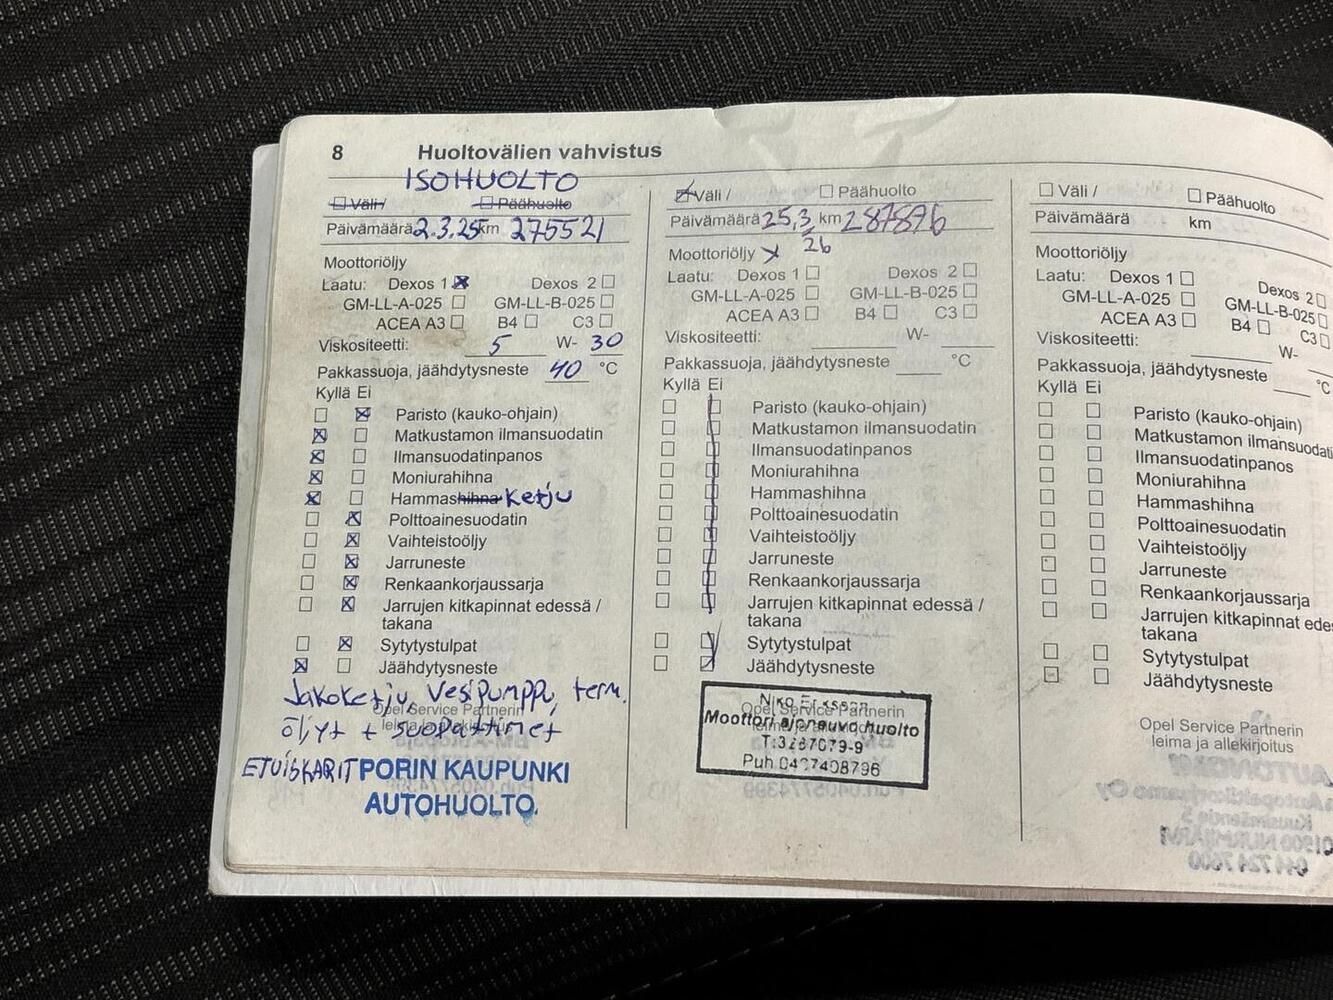 8 Huoltovälien vahvistus
ISOHUOLTO
Väli / Päähuolto
Päivämäärä 2.3.25 km 275521
Moottoriöljy
Laatu: Dexos 1 Dexos 2
GM-LL-A-025 GM-LL-B-025
ACEA A3 B4 C3
Viskositeetti: 5 W- 30
Pakkassuoja, jäähdytysneste 40 °C
Kyllä Ei
Paristo (kauko-ohjain)
Matkustamon ilmansuodatin
Ilmansuodatinpanos
Moniurahihna
Hammashihna Ketju
Polttoainesuodatin
Vaihteistoöljy
Jarruneste
Renkaankorjaussarja
Jarrujen kitkapinnat edessä /
takana
Sytytystulpat
Jäähdytysneste
Jakoketju, Vesipumppu, term.
Opel Service Partnerin
öljyt + suodattimet
ETUISKARIT PORIN KAUPUNKI
AUTOHUOLTO.
Väli / Päähuolto
Päivämäärä 25.3 km 287896
26
Moottoriöljy x
Laatu: Dexos 1 Dexos 2
GM-LL-A-025 GM-LL-B-025
ACEA A3 B4 C3
Viskositeetti: W-
Pakkassuoja, jäähdytysneste °C
Kyllä Ei
Paristo (kauko-ohjain)
Matkustamon ilmansuodatin
Ilmansuodatinpanos
Moniurahihna
Hammashihna
Polttoainesuodatin
Vaihteistoöljy
Jarruneste
Renkaankorjaussarja
Jarrujen kitkapinnat edessä /
takana
Sytytystulpat
Jäähdytysneste
Niko
Opel Service Partnerin
Moottoriajoneuvo huolto
Puh 0437408796
Väli / Päähuolto
Päivämäärä km
Moottoriöljy
Laatu: Dexos 1 Dexos 2
GM-LL-A-025 GM-LL-B-025
ACEA A3 B4 C3
Viskositeetti: W-
Pakkassuoja, jäähdytysneste °C
Kyllä Ei
Paristo (kauko-ohjain)
Matkustamon ilmansuodati
Ilmansuodatinpanos
Moniurahihna
Hammashihna
Polttoainesuodatin
Vaihteistoöljy
Jarruneste
Renkaankorjaussarja
Jarrujen kitkapinnat ede
takana
Sytytystulpat
Jäähdytysneste
Opel Service Partnerin
leima ja allekirjoitus